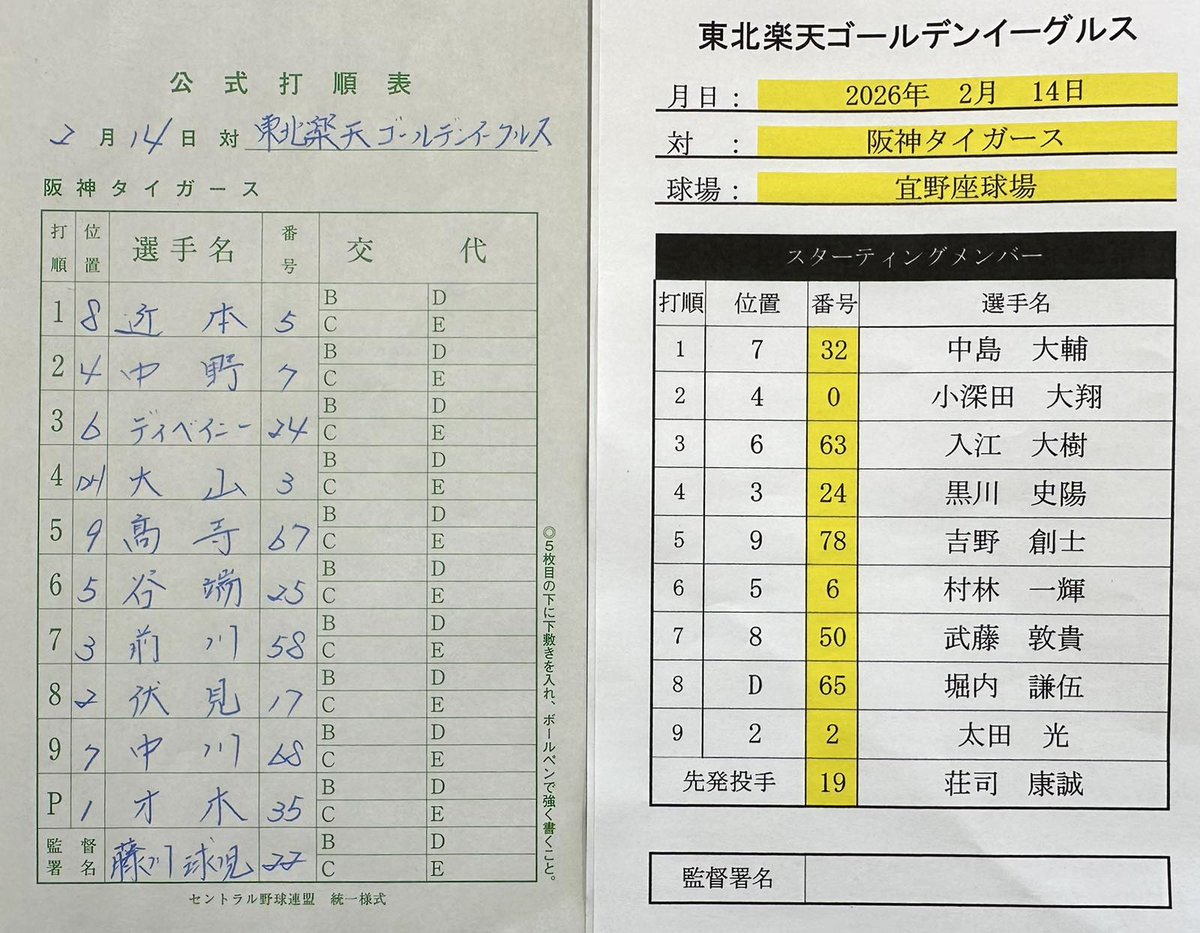 公式打順表
2月14日 対 東北楽天ゴールデンイーグルス
阪神タイガース
打順 位置 選手名 番号 交代
1 8 近本 5 B D C E
2 4 中野 7 B D C E
3 6 ディベイニー 24 B D C E
4 DH 大山 3 B D C E
5 9 髙寺 67 B D C E
6 5 谷端 25 B D C E
7 3 前川 58 B D C E
8 2 伏見 17 B D C E
9 7 中川 68 B D C E
P 1 才木 35 B D C E
監督署名 藤川球児 22 B D C E
セントラル野球連盟 統一様式
◎5枚目の下に下敷きを入れ、ボールペンで強く書くこと。
東北楽天ゴールデンイーグルス
月日: 2026年 2月 14日
対 : 阪神タイガース
球場: 宜野座球場
スターティングメンバー
打順 位置 番号 選手名
1 7 32 中島 大輔
2 4 0 小深田 大翔
3 6 63 入江 大樹
4 3 24 黒川 史陽
5 9 78 吉野 創士
6 5 6 村林 一輝
7 8 50 武藤 敦貴
8 D 65 堀内 謙伍
9 2 2 太田 光
先発投手 19 荘司 康誠
監督署名